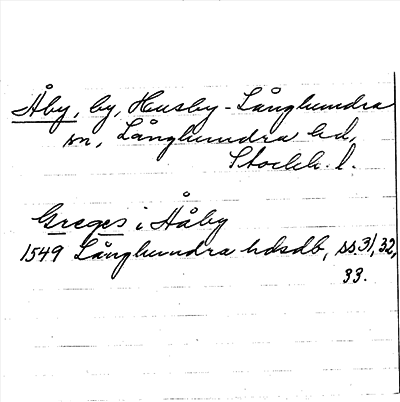 Åby, by, Husby-Långhundra
sn, Långhundra hd,
Stockh. l.
Greges i Åby
1549 Långhundra hdsdb, ss. 31, 32,
33.